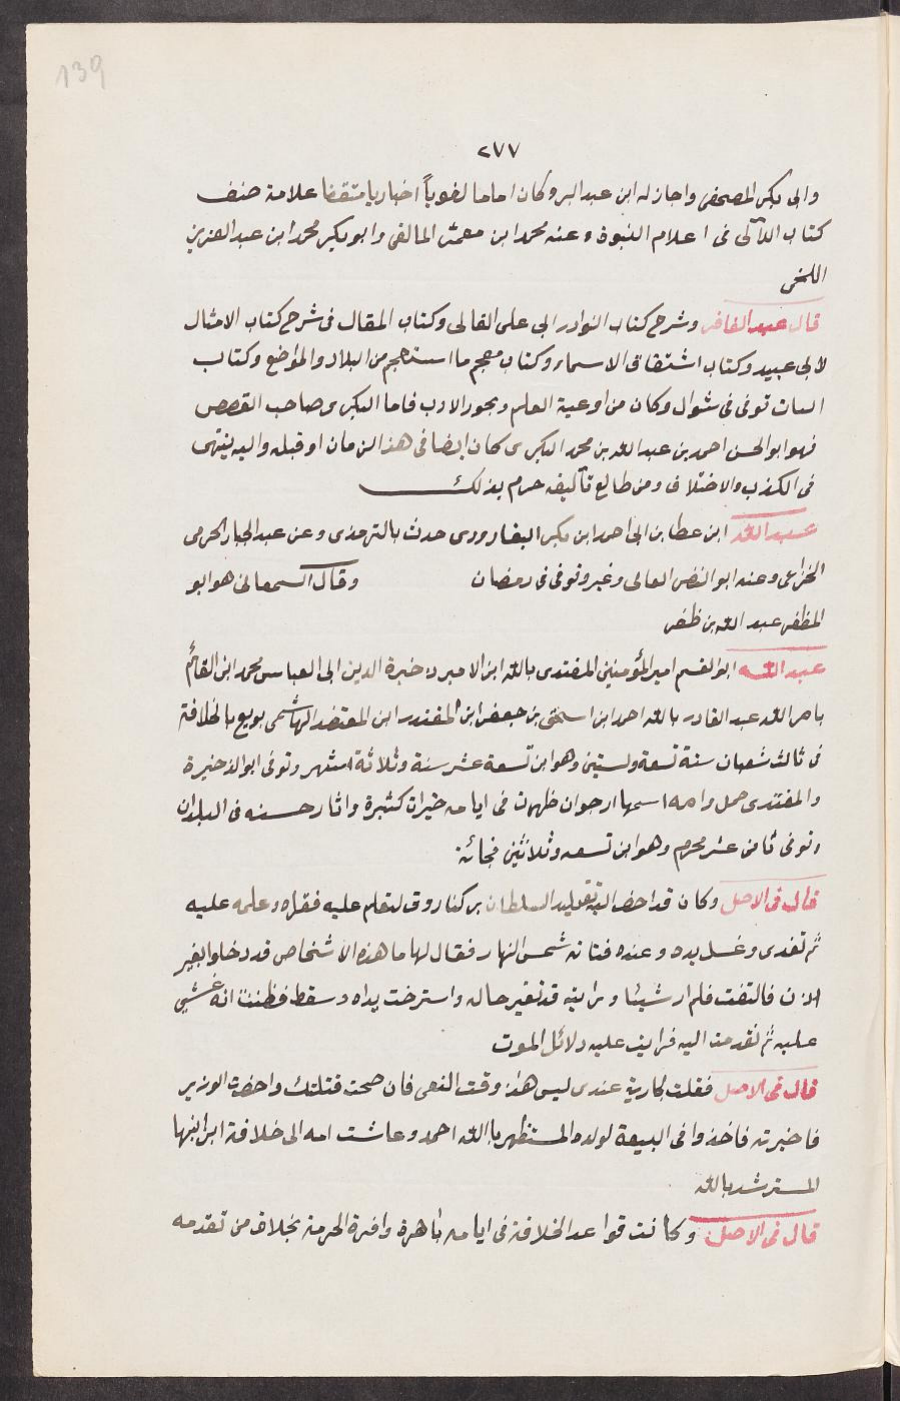 139
٢٧٧
وابى بكر المصحفى واجاز له ابن عبد البر وكان اماما لغوياً اخباريا متقنا علامة صنف
كتاب اللآلى فى اعلام النبوة وعنه محمد ابن معمر المالقى وابو بكر محمد ابن عبد العزيز
اللخمى
قال عبد الغافر وشرح كتاب النوادر ابى على القالى وكتاب المقال فى شرح كتاب الامثال
لابى عبيد وكتاب اشتقاق الاسماء وكتاب معجم ما استعجم من البلاد والمواضع وكتاب
النبات توفى فى شوال وكان من اوعية العلم وبحور الادب فاما البكرى صاحب القصص
فهو ابو الحسن احمد بن عبد الله بن محمد البكرى كان ايضا فى هذا الزمان او قبله واليه ينتهى
فى الكذب والاختلاق ومن طالع تآليفه جزم بذلك
عبد الله ابن عطا بن ابى احمد ابن بكر البغاوردى حدث بالترمذى وعن عبد الجبار الجرمى
الخزاعى وعنه ابو النضر الفامى وغيره توفى فى رمضان وقال السمعانى هو ابو
المظفر عبد الله بن ظفر
عبد الله ابو القسم امير المؤمنين المقتدى بالله ابن الامير ذخيرة الدين ابى العباس محمد ابن القائم
بامر الله عبد القادر بالله احمد ابن اسحق بن جعفر ابن المقتدر ابن المعتضد الهاشمى بويع بالخلافة
فى ثالث شعبان سنة تسعة وستين وهو ابن تسعة عشر سنة وثلاثة اشهر وتوفى ابوالذخيرة
والمقتدى حمل وامه اسمها ارجوان ظهرت فى ايامه خيرات كثيرة واثار حسنه فى البلدان
وتوفى ثامن عشر محرم وهو ابن تسعه وثلاثين فجائة
قال فى الاصل وكان قد احضر اليه تقليد السلطان بركياروق ليعلم عليه فقرأه وعلمه عليه
ثم تغدى وغسل يده وعنده فتاته شمس النهار فقال لها ما هذه الاشخاص قد دخلوا بغير
اذن فالتفت فلم ار شيئا ورايته قد تغير حاله واسترخت يداه وسقط فظننت انه غشى
عليه ثم تقدمت اليه فرايت عليه دلائل الموت
قال فى الاصل فقلت لجارية عندى ليس هذا وقت النعى فان صحت قتلتك واحضرت الوزير
فاخبرته فاخذوا فى البيعة لولده المستظهر باالله احمد وعاشت امه الى خلافة ابن ابنها
المسترشد بالله
قال فى الاصل وكانت قواعد الخلافة فى ايامه باهرة وافرة الحرمة بخلاف من تقدمه